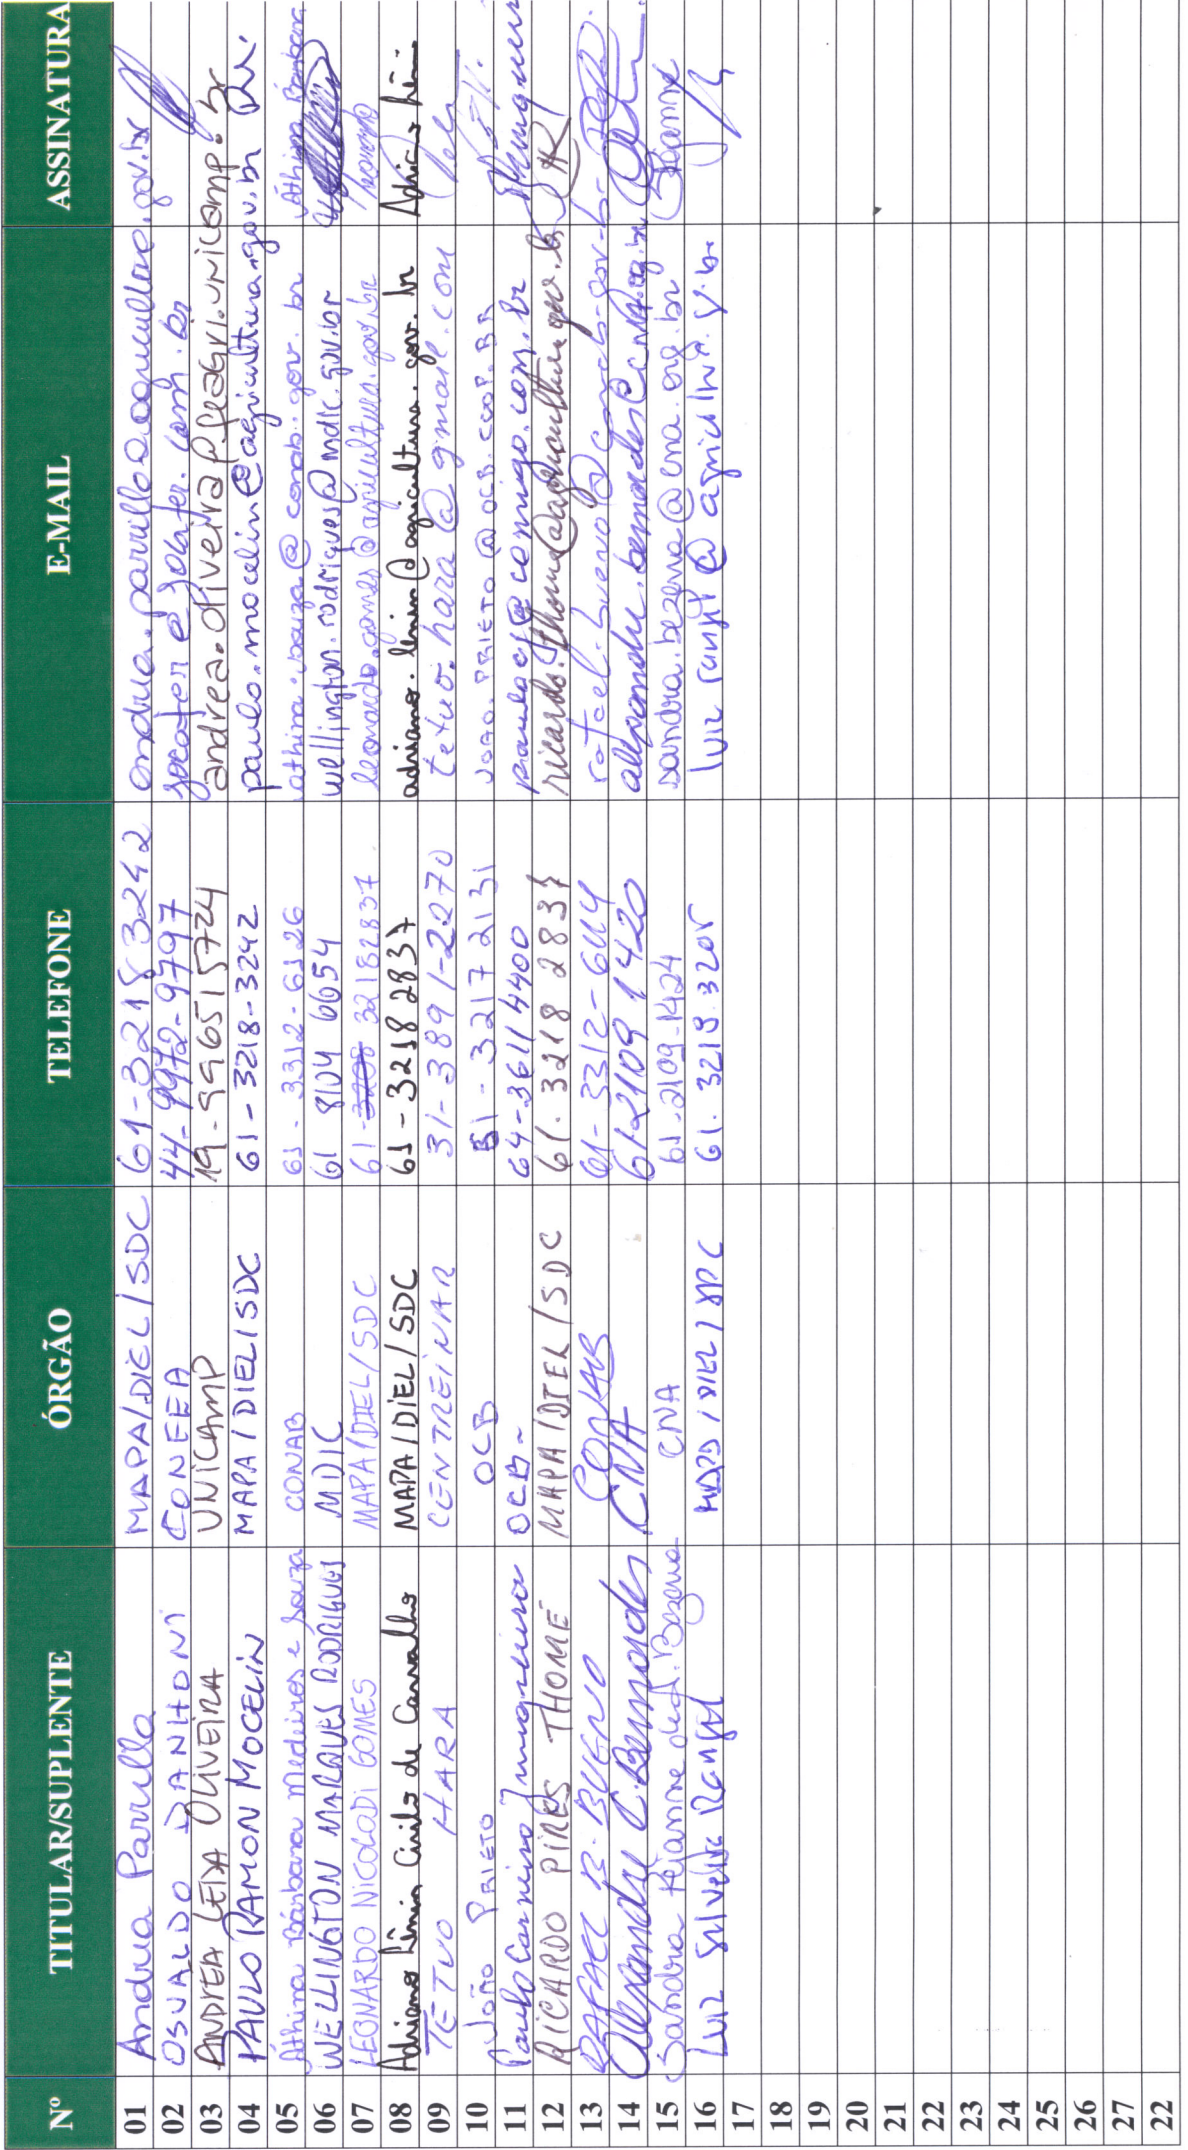 Nº TITULAR/SUPLENTE ÓRGÃO TELEFONE E-MAIL ASSINATURA
01 Andrea Parrilla MAPA/DIEL/SDC 61-3218 3242
02 OSVALDO DANHONI CONFEA 44-9972-9797
03 ANDREA LEDA OLIVEIRA UNICAMP 19-996515724 andrea.oliveira@feagri.unicamp.br
04 PAULO RAMON MOCELIN MAPA/DIEL/SDC 61-3218-3242 paulo.mocelin@agricultura.gov.br
05 Athina Bárbara Medeiros e Souza CONAB 61-3312-6126 athina.souza@conab.gov.br Athina Bárbara
06 WELLINGTON MARQUES RODRIGUES MDIC 61 8104 6654 wellington.rodrigues@mdic.gov.br
07 LEONARDO NICOLODI GOMES MAPA/DIEL/SDC 61-3218 2837 leonardo.gomes@agricultura.gov.br
08 Adriano Lênin Cirilo de Carvalho MAPA/DIEL/SDC 61-3218 2837 adriano.lenin@agricultura.gov.br Adriano Lênin
09 TETUO HARA CENTREINAR 31-3891-2270 tetuo.hara@gmail.com
10 JOÃO PRIETO OCB 61-3217 2131 JOAO.PRIETO@OCB.COOP.BR
11 Paulo Carneiro Junqueira OCB- 64-3611 4400 Junqueira
12 RICARDO PIRES THOMÉ MAPA/DIEL/SDC 61. 3218 2837 ricardo.thome@agricultura.gov.br
13 RAFAEL R. BUENO CONAB 61-3312-6114 rafael.bueno@conab.gov.br
14 Alexandre C. Bermardes CNA 61-2109 1420
15 Sandra Rejanne CNA 61-2109-1424 sandra.bezerra@cna.org.br Rejanne
16 LUIZ Silvestre Rangel MAPA/DIEL/SDC 61. 3218.3205
17
18
19
20
21
22
23
24
25
26
27
22